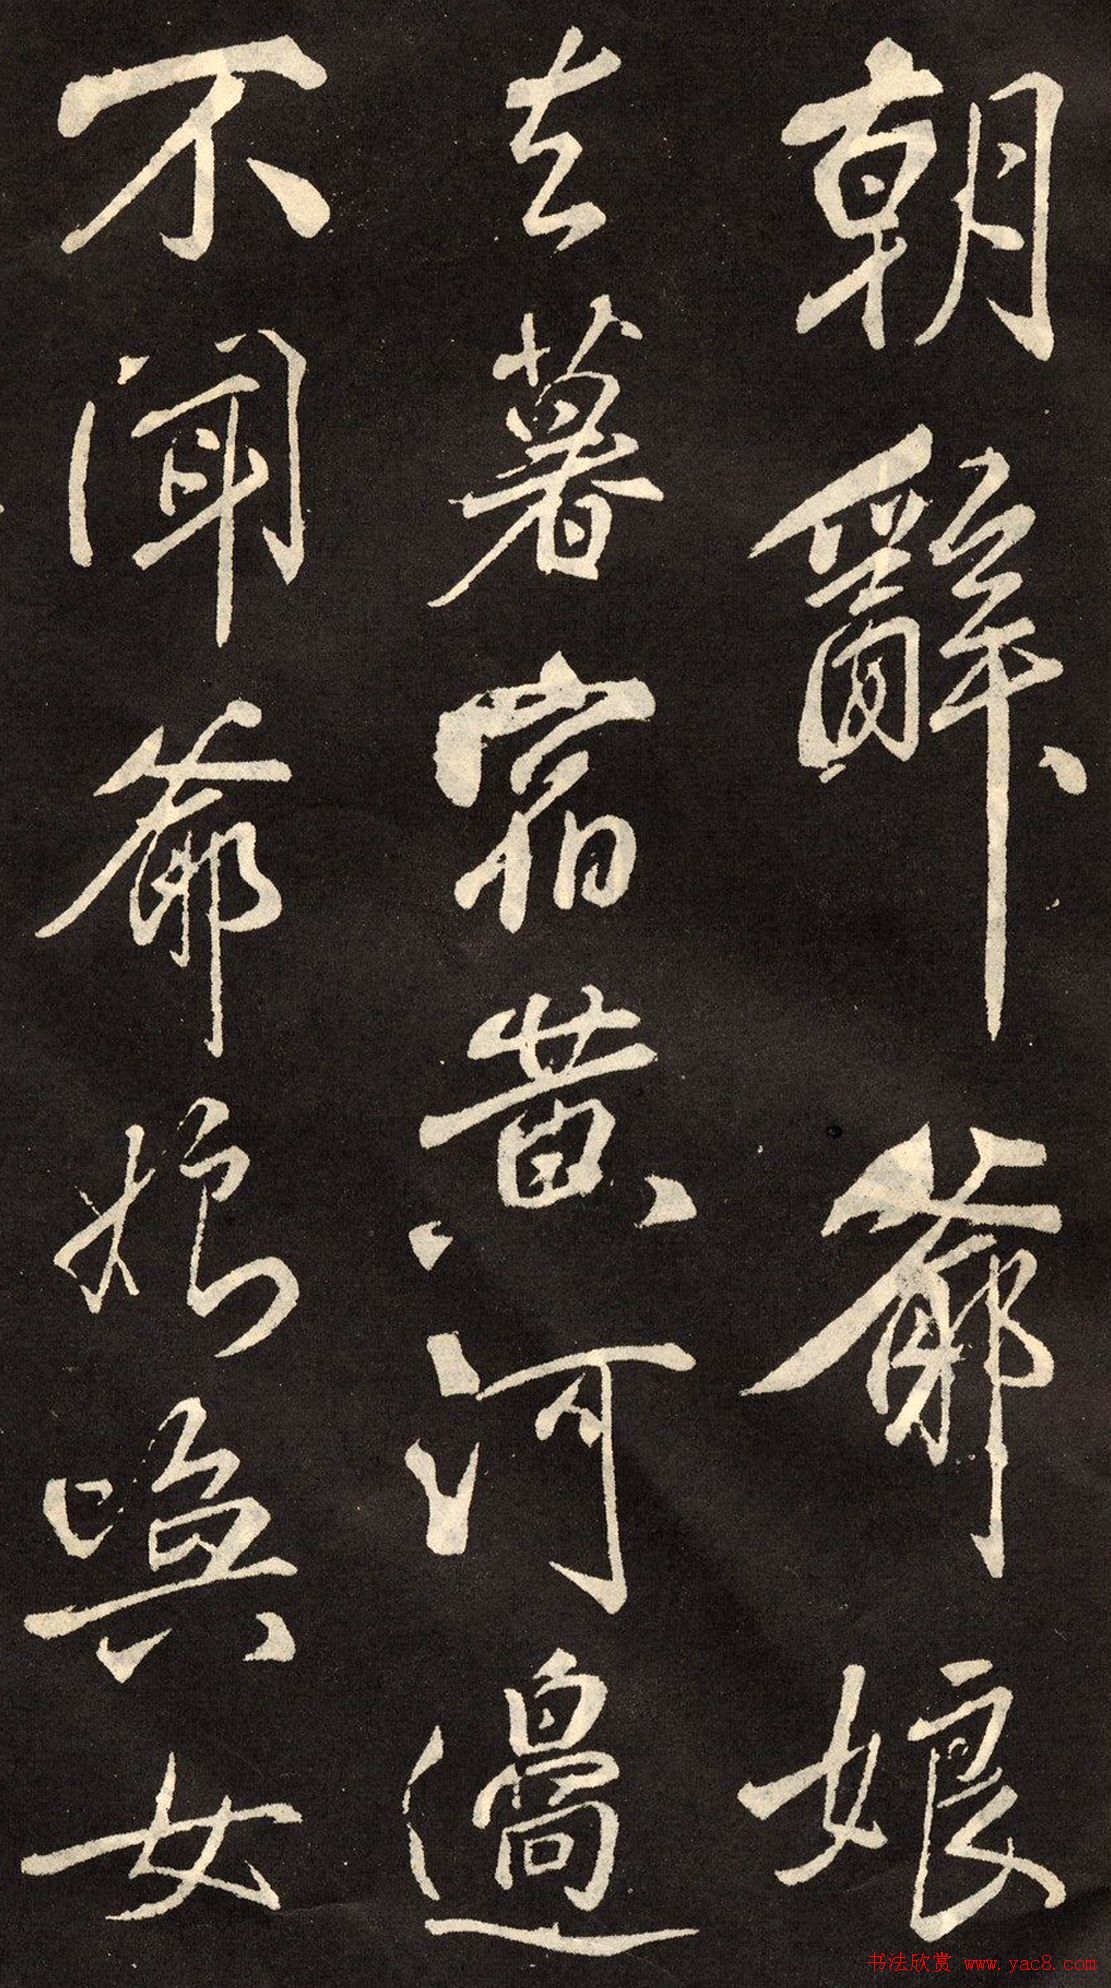 朝辭爺娘
去暮宿黄河邊
不聞爺娘喚女
书法欣赏 www.yac8.com